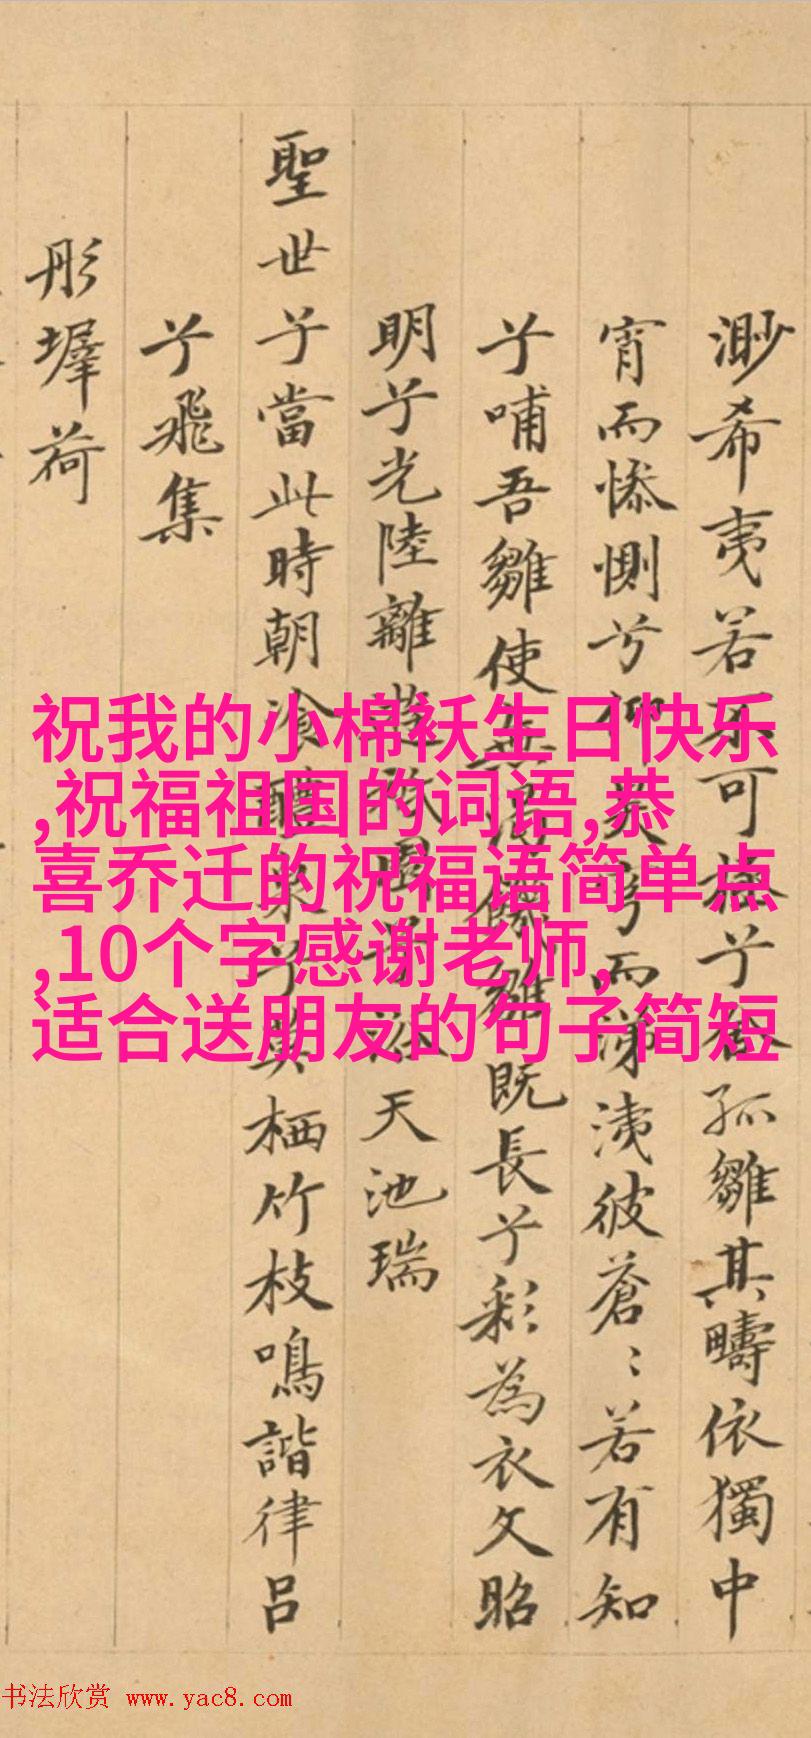 渺希夷若不可兮孤雛其疇依獨中
宵而慘惻兮仰而涕洟彼蒼〻若有知
兮哺吾雛使無雛既長兮彩為衣文昭
明兮光陸離遊天池瑞
聖世兮當此時朝飡醴泉兮莫栖竹枝鳴諧律呂
兮飛集
彤墀荷
祝我的小棉袄生日快乐
,祝福祖国的词语,恭
喜乔迁的祝福语简单点
,10个字感谢老师,
适合送朋友的句子简短
书法欣赏 www.yac8.com